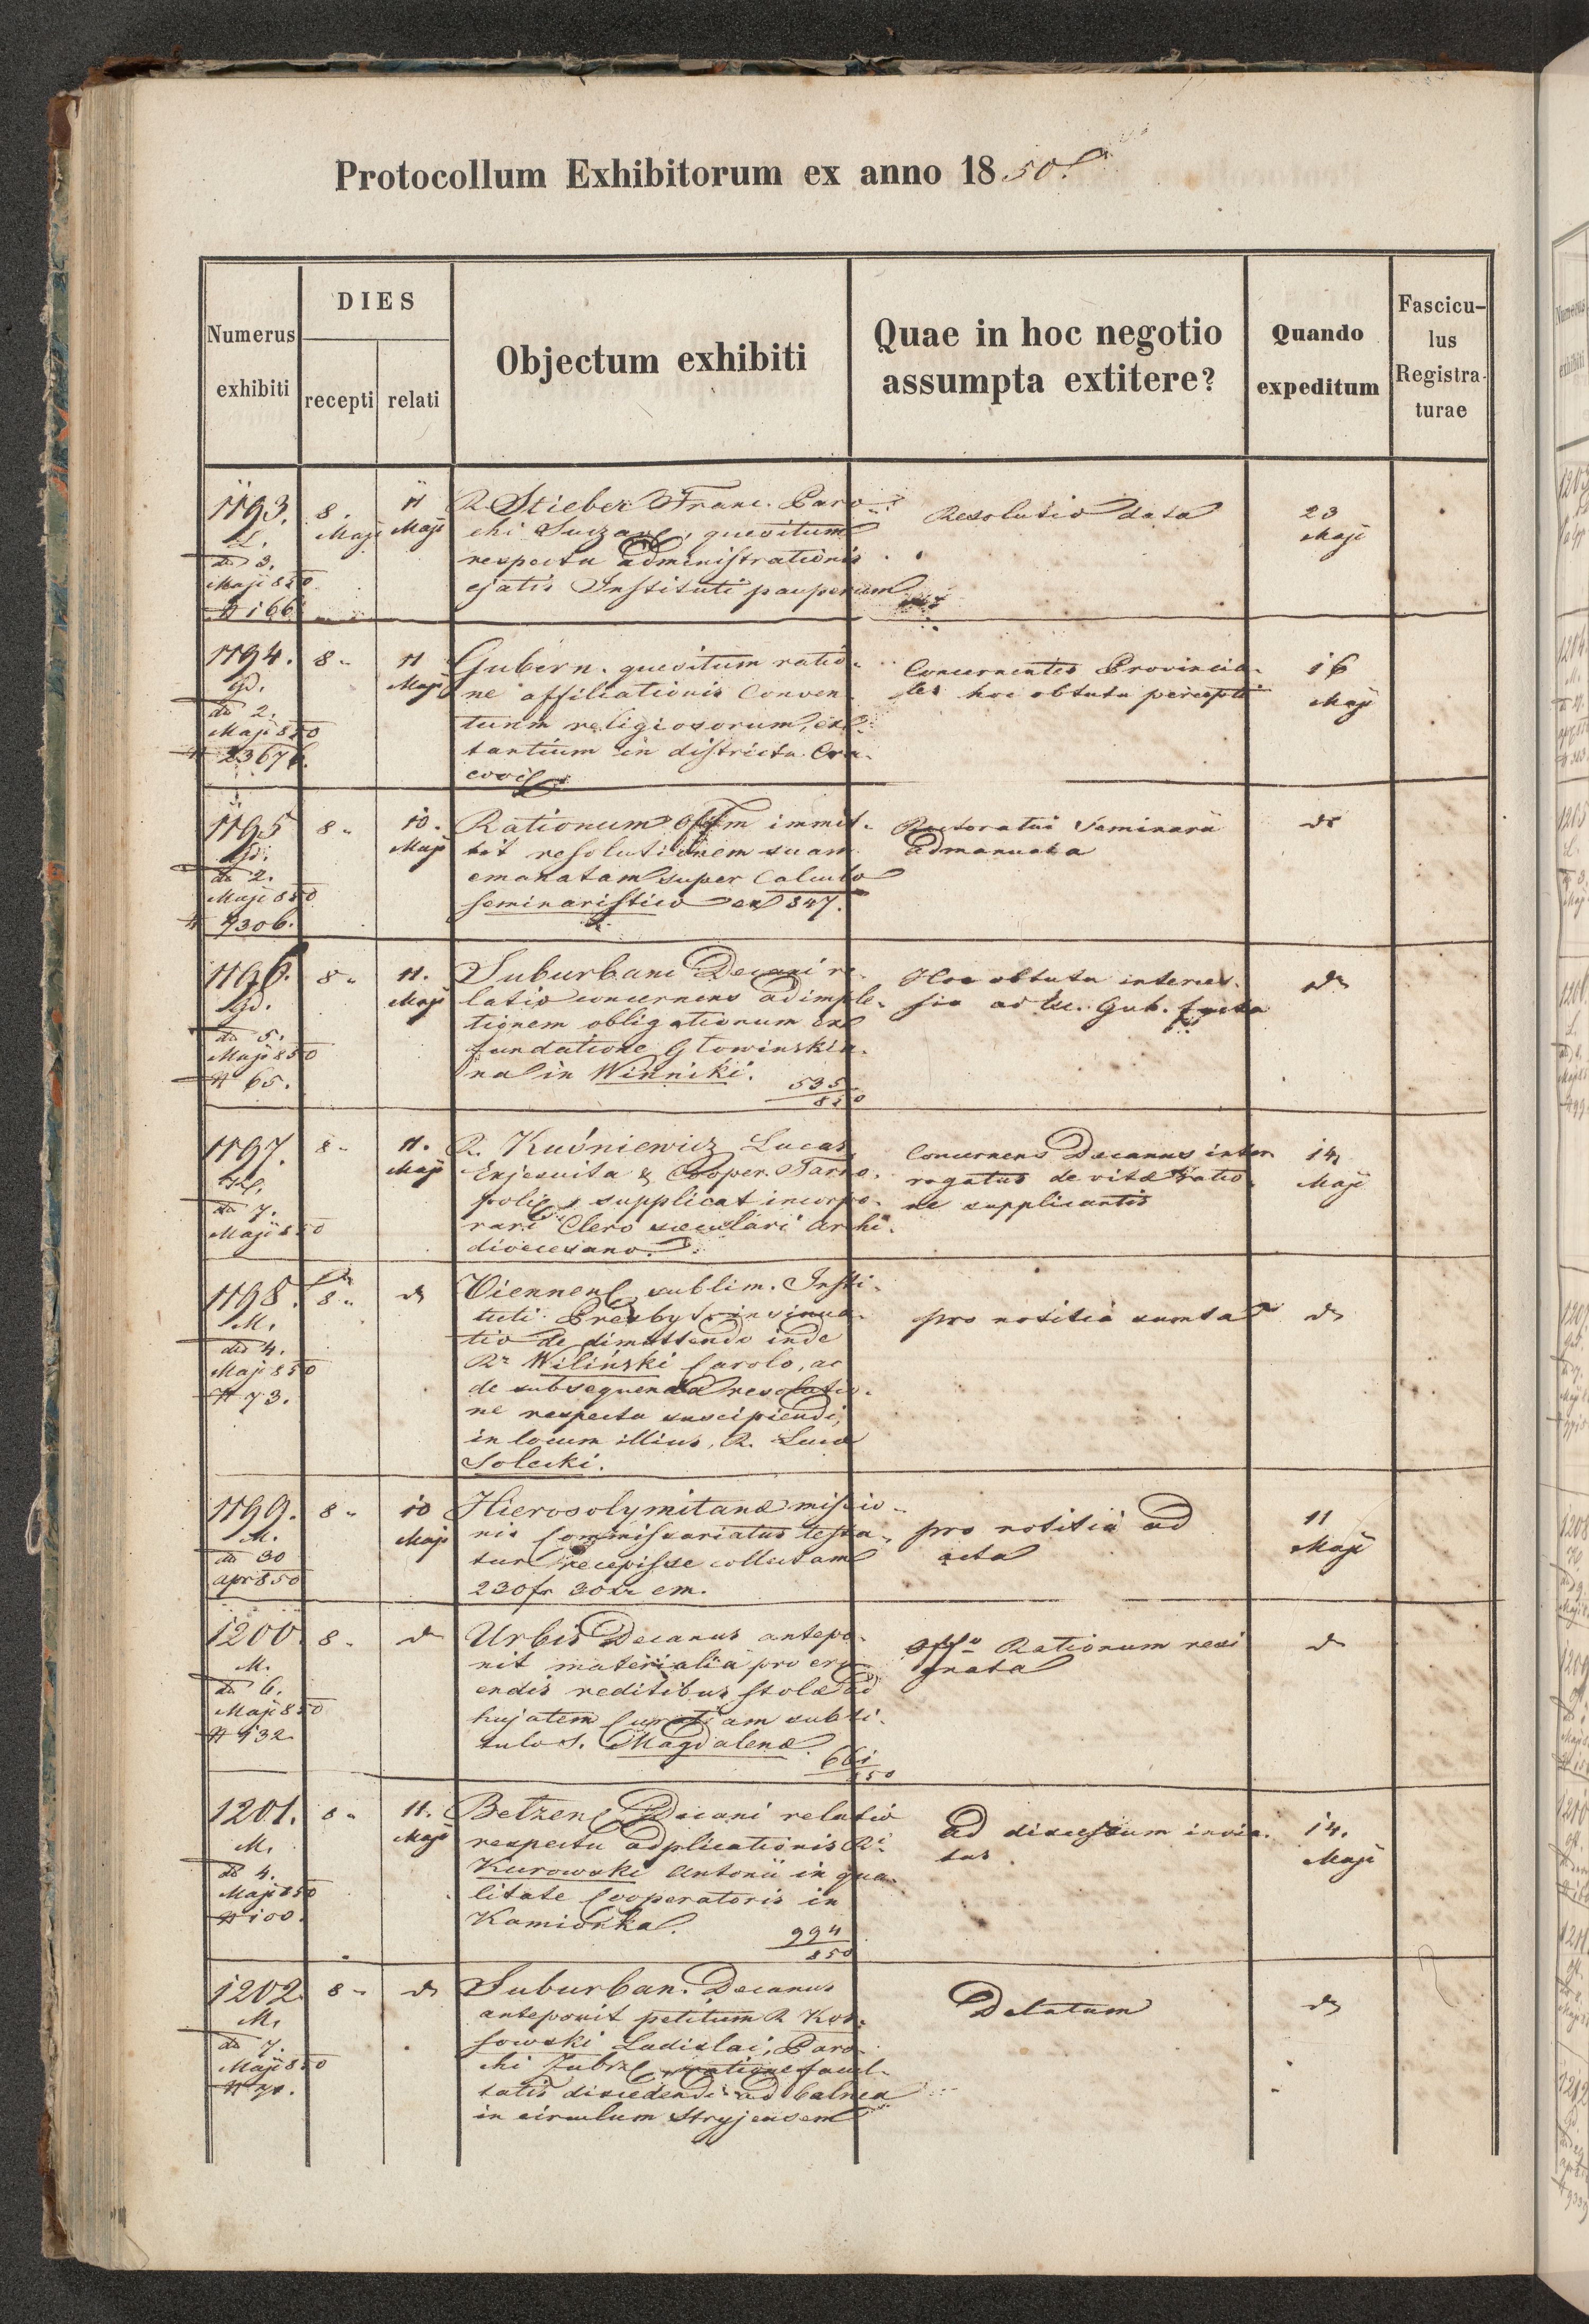 Protocollum Exhibitorum ex anno 1850.
Numerus exhibiti
DIES
recepti
relati
Objectum exhibiti
Quae in hoc negotio assumpta extitere?
Quando expeditum
Fascicu-
lus
Registra-
turae
1193.
L.
do 3.
Maji 850
N 166
8.
Maji
11
Maji
R. Stieber Franc. Paro-
chi quesitum
respectu administrationis
ejatis Instituti pauperum
Resolutio data
23
Maji
1194.
Gd.
do 2.
Maji 850
N 23676.
8 "
11
Maji
Gubern. quesitum ratio-
ne affiliationis Conven-
tuum religiosorum, ex-
tantium in districtu Cra-
covi
Concernentes Provincia-
les hoc obtutu percepti
16
Maji
1195
Gd.
do 2.
Maji 850
N 4306.
8 "
10.
Maji
Rationum Offm immit-
tit resolutionem suam
emanatam super Calculo
seminaristico ex 847.
Rectoratui Seminarii
admanuata
do
1196.
Gd.
do 5.
Maji 850
N 65.
8 "
11.
Maji
Suburbani Decani re-
latio concernens adimple-
tionem obligationum ex
fundatione Głowinskia-
na in Winniki.
535
850
Hoc obtutu interces-
sio ad Exc. Gub. facta
do
1197.
do 7.
Maji 850
8 "
11.
Maji
R. Kuśniewicz Lucas
Exjesuita & Cooper. Tarno-
poli supplicat incorpo-
rari Clero saeculari Archi-
dioecesano.
Concernens Decanus inter-
rogatus de vitae ratio-
ne supplicantis
14
Maji
1198.
M.
do 4.
Maji 850
N 73.
8 "
do
Viennen sublim. Insti-
tuti Presbyt. insinua-
tio de dimittendo inde
Ro Wiliński Carolo, ac
de subsequenda resolutio-
ne respectu suscipiendi,
in locum illius, R. Luca
Solecki.
pro notitia sumta
do
1199.
M.
do 30
apr 850
8 "
10
Maji
Hierosolymitanae missio-
nis Commissariatus testa-
tur recepisse collectam
230 fr 30 xr cm.
pro notitia ad
acta
11
Maji
1200
M.
do 6.
Maji 850
N 432
8 "
do
Urbis Decanus antepo-
nit materialia pro eru-
endis reditibus stolae ad
hujatem Curatiam sub ti-
tulo S. Magdalenae
661
850
Offo Rationum resi-
gnata
do
1201.
M.
do 4.
Maji 850
N 100.
8 "
11.
Maji
Bełzen Decani relatio
respectu adplicationis Ri
Kurowski Antonii in qua-
litate Cooperatoris in
Kamionka.
994
850
Ad discessum invia-
tus
14.
Maji
1202
M.
do 7.
Maji 850
8 "
do
Suburban. Decanus
anteponit petitum R Kos-
sowski Ladislai, Paro-
chi Zubrz ratione facul-
tatis discedendi ad balnea
in circulum Stryjensem
Delatum
do